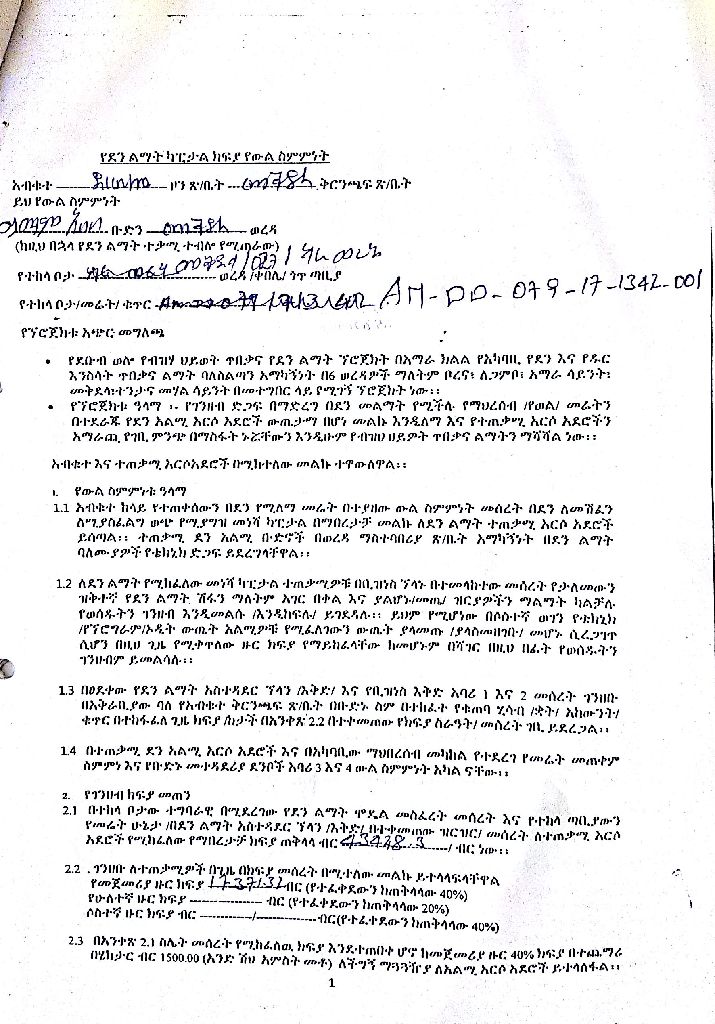 የደን ልማት ካፒታል ክፍያ የውል ስምምነት
አብቁተ ዞን ጽ/ቤት --- ቅርንጫፍ ጽ/ቤት
ይህ የውል ስምምነት
ቡድን ወረዳ
(ከዚህ በኋላ የደን ልማት ተቃሚ ተብሎ የሚጠራው)
የተከላ ቦታ ወረዳ/ቀበሌ/ ጎጥ ጣቢያ
የተከላ ቦታ/መሬት/ ቁጥር AM-DD-079-17-1342-001
የፕሮጀክቱ አጭር መግለጫ
• የደቡብ ወሎ የብዝሃ ህይወት ጥበቃና የደን ልማት ፕሮጀክት በአማራ ክልል የአካባቢ የደን እና የዱር
እንስሳት ጥበቃና ልማት ባለስልጣን አማካኝነት በ6 ወረዳዎች ማለትም ቦረና፣ ለጋምቦ፣ አማራ ሳይንት፣
መቅደላ፣ተንታና መሃል ሳይንት በመተግበር ላይ የሚገኝ ፕሮጀክት ነው፡፡
• የፕሮጀክቱ ዓላማ ፡- የገንዘብ ድጋፍ በማድረግ በደን መልማት የሚችሉ የማህበረሰብ /የወል/ መሬትን
በተደራጁ የደን አልሚ አርሶ አደሮች ውጤታማ በሆነ መልኩ እንዲለማ እና የተጠቃሚ አርሶ አደሮችን
አማራጪ የገቢ ምንጭ በማስፋት ኑሯቸውን እንዲሁም የብዝሀ ህይዎት ጥበቃና ልማትን ማሻሻል ነው፡፡
አብቁተ እና ተጠቃሚ አርሶአደሮች በሚከተለው መልኩ ተዋውለዋል፡፡
1. የውል ስምምነቱ ዓላማ
1.1 አብቁተ ከላይ የተጠቀሰውን በደን የሚለማ መሬት በተያዘው ውል ስምምነት መሰረት በደን ለመሸፈን
ስሚያስፈልግ ወጭ የሚያግዝ መነሻ ካፒታል በማበረታቻ መልኩ ለደን ልማት ተጠቃሚ አርሶ አደሮች
ይሰጣል፡፡ ተጠቃሚ ደን አልሚ ቡድኖች በወረዳ ማስተባበሪያ ጽ/ቤት አማካኝነት በደን ልማት
ባለሙያዎች የቴክኒክ ድጋፍ ይደረግላቸዋል፡፡
1.2 ለደን ልማት የሚከፈለው መነሻ ካፒታል ተጠቃሚዎቹ በቢዝነስ ፕላኑ በተመላከተው መሰረት የታለመውን
ዝቅተኛ የደን ልማት ሽፋን ማለትም አገር በቀል እና ያልሆኑ/መጤ/ ዝርያዎችን ማልማት ካልቻሉ
የወሰዱትን ገንዘብ እንዲመልሱ /እንዲከፍሉ/ ይገደዳሉ፡፡ ይህም የሚሆነው በሶስተኛ ወገን የቴክኒክ
/የፕሮግራም/ኦዲት ውጤት አልሚዎቹ የሚፈለገውን ውጤት ያላመጡ /ያላስመዘገቡ/ መሆኑ ሲረጋገጥ
ሲሆን በዚህ ጊዜ የሚቀጥለው ዙር ክፍያ የማይከፈላቸው ከመሆኑም በሻገር በዚህ በፊት የወሰዱትን
ገንዘብም ይመልሳሉ፡፡
1.3 በፀደቀው የደን ልማት አስተዳደር ፕላን /እቅድ/ እና የቢዝነስ እቅድ አባሪ 1 እና 2 መሰረት ገንዘቡ
በአቅራቢያው ባለ የአብቁተ ቅርንጫፍ ጽ/ቤት በቡድኑ ስም በተከፈተ የቁጠባ ሂሳብ /ቋት/ አካውንት/
ቁጥር በተከፋፈለ ጊዜ ክፍያ /ከታች በአንቀጽ 2.2 በተቀመጠው የክፍያ ስርዓት/ መሰረት ገቢ ይደረጋል፡፡
1.4 በተጠቃሚ ደን አልሚ አርሶ አደሮች እና በአካባቢው ማህበረሰብ መካከል የተደረገ የመሬት መጠቀም
ስምምነ እና የቡድኑ መተዳደሪያ ደንቦች አባሪ 3 እና 4 ውል ስምምነት አካል ናቸው፡፡
2. የገንዘብ ክፍያ መጠን
2.1 በተከላ ቦታው ተግባራዊ በሚደረገው የደን ልማት ሞዴል መስፈረት መሰረት እና የተከላ ጣቢያውን
የመሬት ሁኔታ /በደን ልማት አስተዳደር ፕላን /እቅድ/ በተቀመጠው ዝርዝር/ መሰረት ለተጠቃሚ አርሶ
አደሮች የሚከፈለው የማበረታቻ ክፍያ ጠቅላላ ብር 43428.3 / ብር ነው፡፡
2.2 . ገንዘቡ ለተጠቃሚዎች በጊዜ በክፍያ መሰረት በሚተለው መልኩ ይተላለፍላቸዋል
የመጀመሪያ ዙር ክፍያ 17371.32 ብር (የተፈቀደውን ከጠቅላላው 40%)
የሁለተኛ ዙር ክፍያ ---------------- ብር (የተፈቀደውን ከጠቅላላው 20%)
ሶስተኛ ዙር ክፍያ ብር ------------/---------------ብር(የተፈተደውን ከጠቅላላው 40%)
2.3 በአንቀጽ 2.1 ስሌት መሰረት የሚከፈሰው ክፍያ እንደተጠበቀ ሆኖ ከመጀመሪያ ዙር 40% ክፍያ በተጨማሪ
በሄክታር ብር 1500.00 (አንድ ሽህ አምስት መቶ) ለችግኝ ማጓጓዣያ ለአልሚ አርሶ አደሮች ይተላለፋል፡፡
1